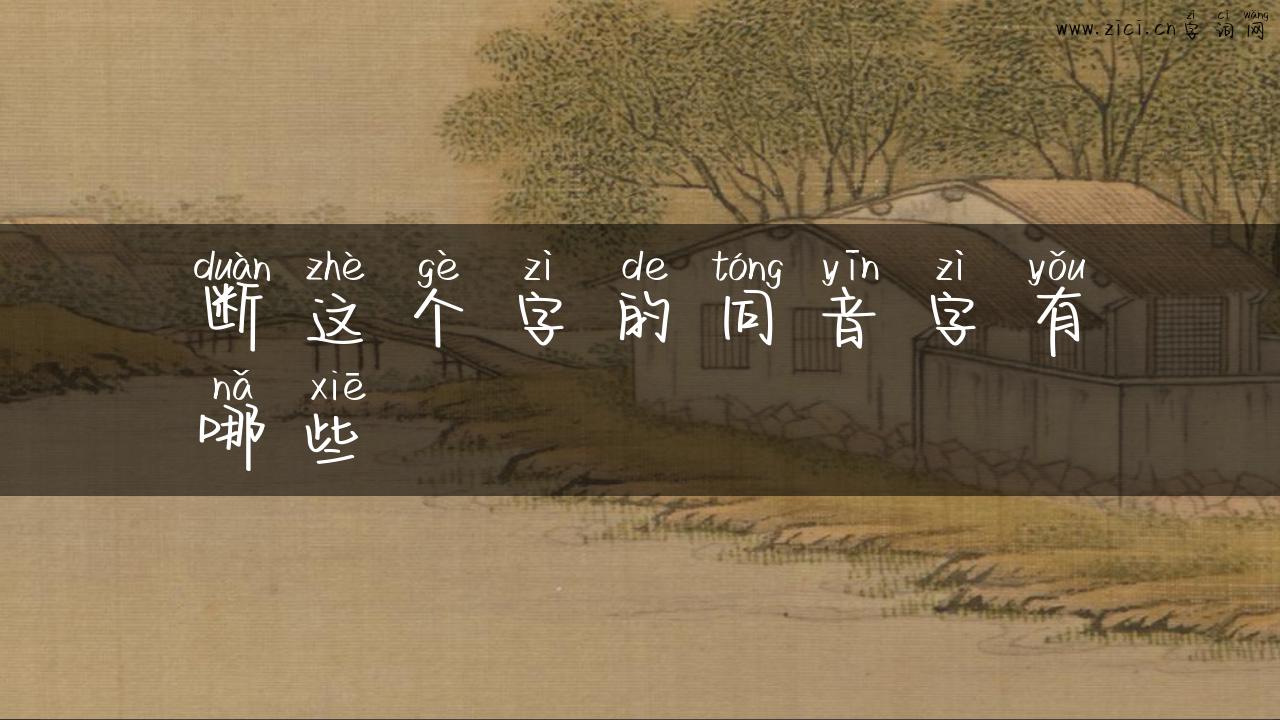 zì cí wǎng
www.zici.cn字词网
duàn zhè gè zì de tóng yīn zì yǒu
断这个字的同音字有
nǎ xiē
哪些